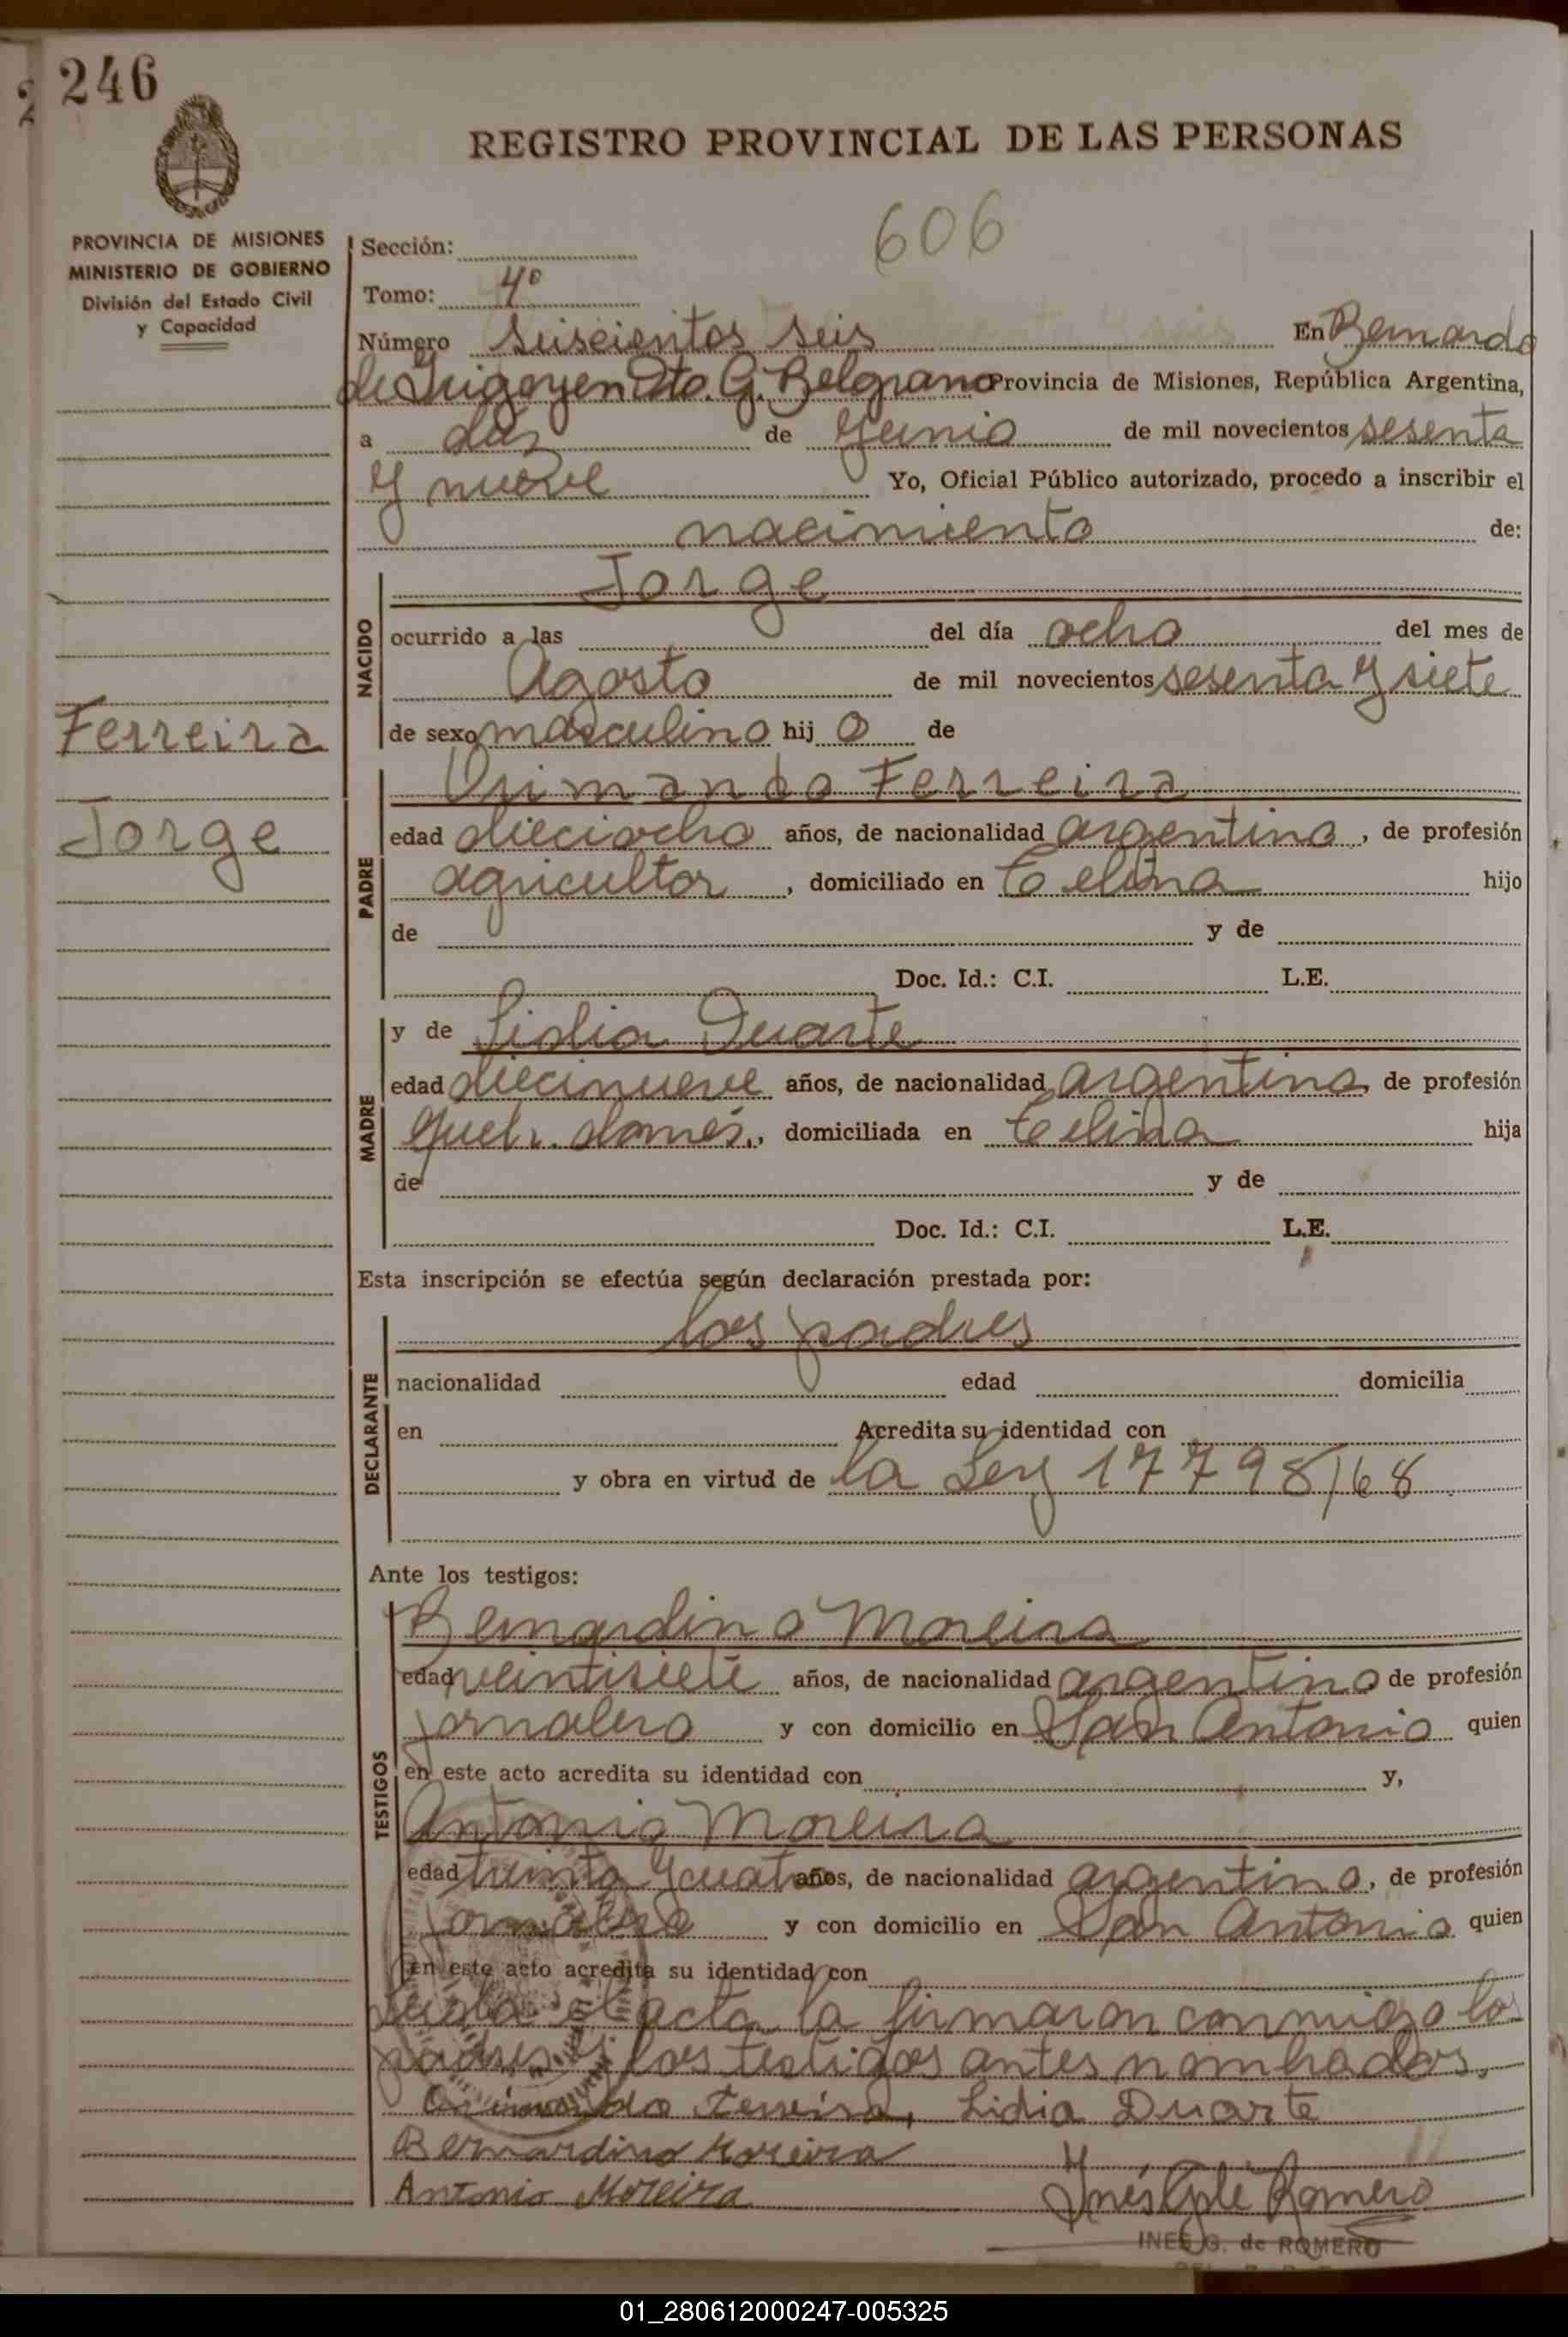 246
REGISTRO PROVINCIAL DE LAS PERSONAS
606
PROVINCIA DE MISIONES
MINISTERIO DE GOBIERNO
División del Estado Civil
y Capacidad
Sección:
Tomo: 4º
Número seiscientos seis En Bernardo
de Irigoyen Dto. G. Belgrano Provincia de Misiones, República Argentina,
a dos de Junio de mil novecientos sesenta
y nueve Yo, Oficial Público autorizado, procedo a inscribir el
nacimiento de:
NACIDO
Jorge
ocurrido a las del día ocho del mes de
Agosto de mil novecientos sesenta y siete
de sexo masculino hij o de
Ferreira
Jorge
PADRE
Orimando Ferreira
edad dieciocho años, de nacionalidad argentino, de profesión
agricultor, domiciliado en Celina hijo
de y de
Doc. Id.: C.I. L.E.
MADRE
y de Lidia Duarte
edad diecinueve años, de nacionalidad argentina, de profesión
queh. domés., domiciliada en Celina hija
de y de
Doc. Id.: C.I. L.E.
Esta inscripción se efectúa según declaración prestada por:
DECLARANTE
los padres
nacionalidad edad domicilia
en Acredita su identidad con
y obra en virtud de la Ley 17798/68
Ante los testigos:
TESTIGOS
Bernardino Moreira
edad veintisiete años, de nacionalidad argentino de profesión
jornalero y con domicilio en San Antonio quien
en este acto acredita su identidad con y,
Antonio Moreira
edad treinta y cuatro años, de nacionalidad argentino, de profesión
jornalero y con domicilio en San Antonio quien
en este acto acredita su identidad con
Leída el acta la firmaron conmigo los
padres y los testigos antes nombrados.
Orimando Ferreira, Lidia Duarte
Bernardino Moreira
Antonio Moreira Inés Romero
INES G. de ROMERO
01_280612000247-005325